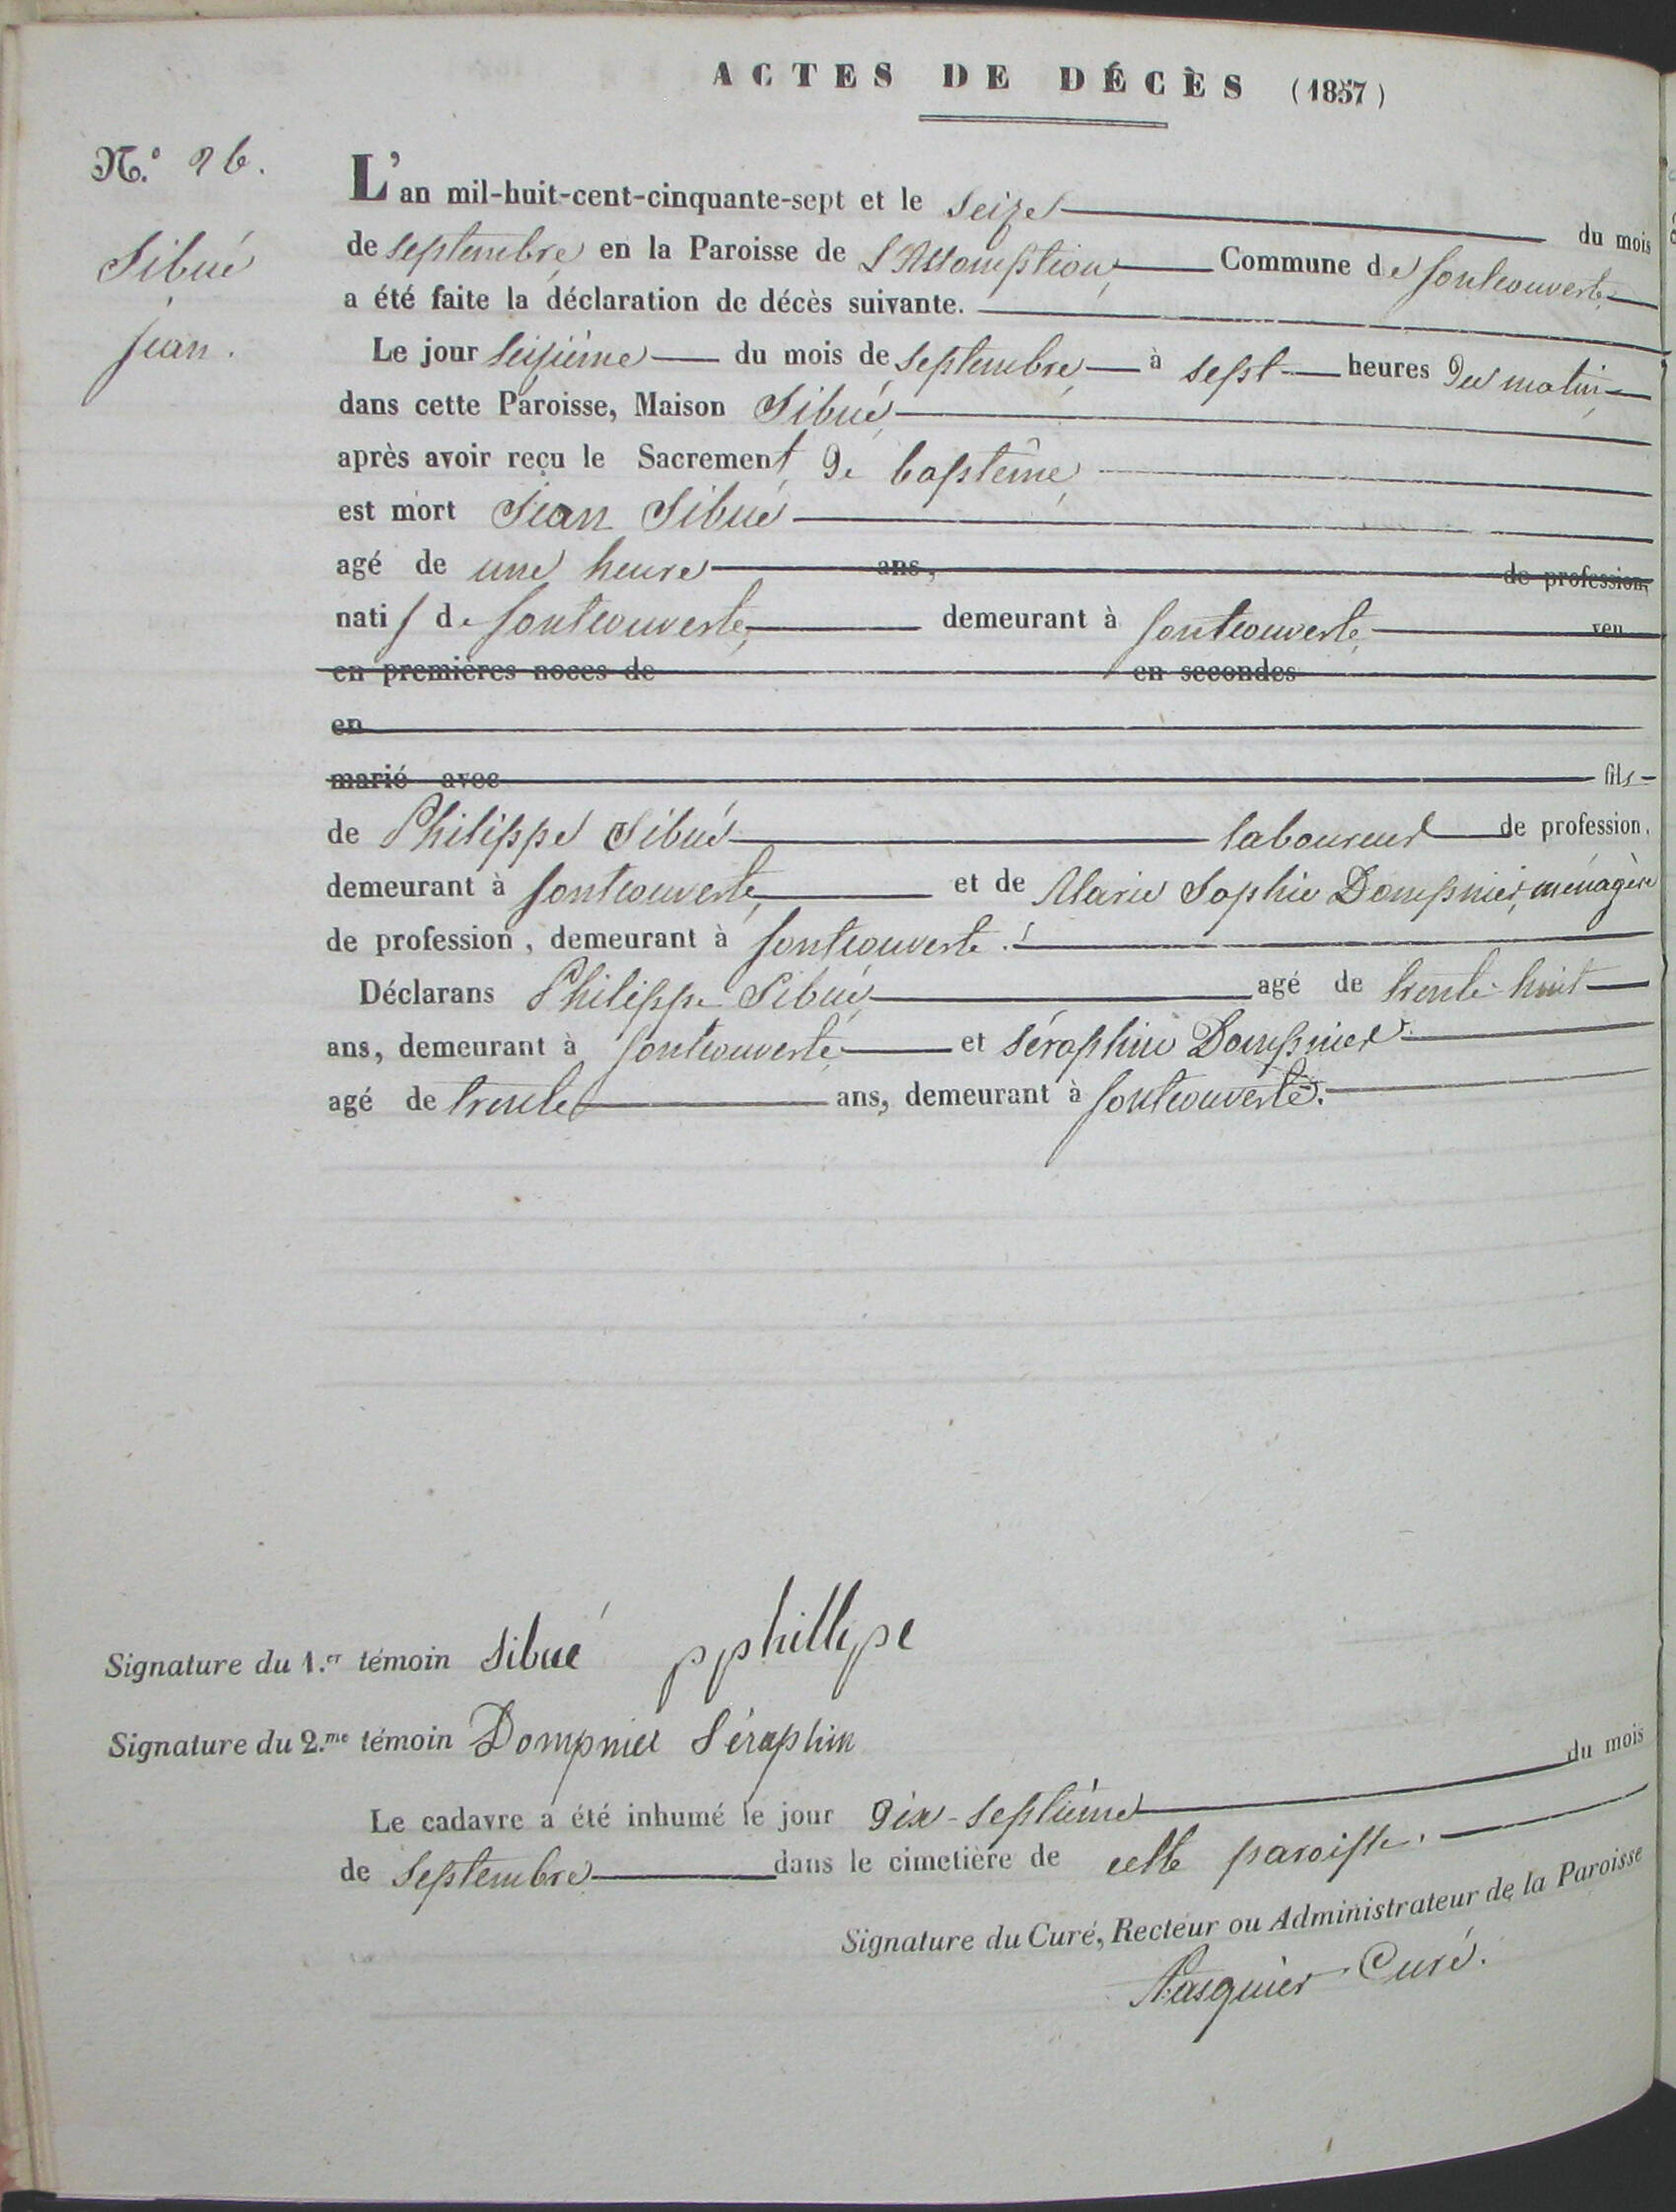 ACTES DE DÉCÈS (1857)
N.º 26.
Sibué
jean.
L'an mil-huit-cent-cinquante-sept et le seize du mois
de septembre en la Paroisse de L'Assomption, Commune de fontcouverte
a été faite la déclaration de décès suivante.
Le jour seizième du mois de septembre à sept heures du matin
dans cette Paroisse, Maison Sibué,
après avoir reçu le Sacrement de baptême,
est mort Jean Sibué
agé de une heure ans, de profession,
natif de fontcouverte, demeurant à fontcouverte, veu
en premières noces de en secondes
en
marié avec fils
de Philippe Sibué laboureur de profession,
demeurant à fontcouverte, et de Marie Sophie Dompnier, ménagère
de profession, demeurant à fontcouverte.
Déclarans Philippe Sibué, agé de trente-huit
ans, demeurant à fontcouverte, et Séraphin Dompnier
agé de trente ans, demeurant à fontcouverte.
Signature du 1.er témoin Sibué pphillipe
Signature du 2.me témoin Dompnier Séraphin
Le cadavre a été inhumé le jour dix-septième du mois
de septembre dans le cimetière de cette paroisse.
Signature du Curé, Recteur ou Administrateur de la Paroisse
Pasquier Curé.